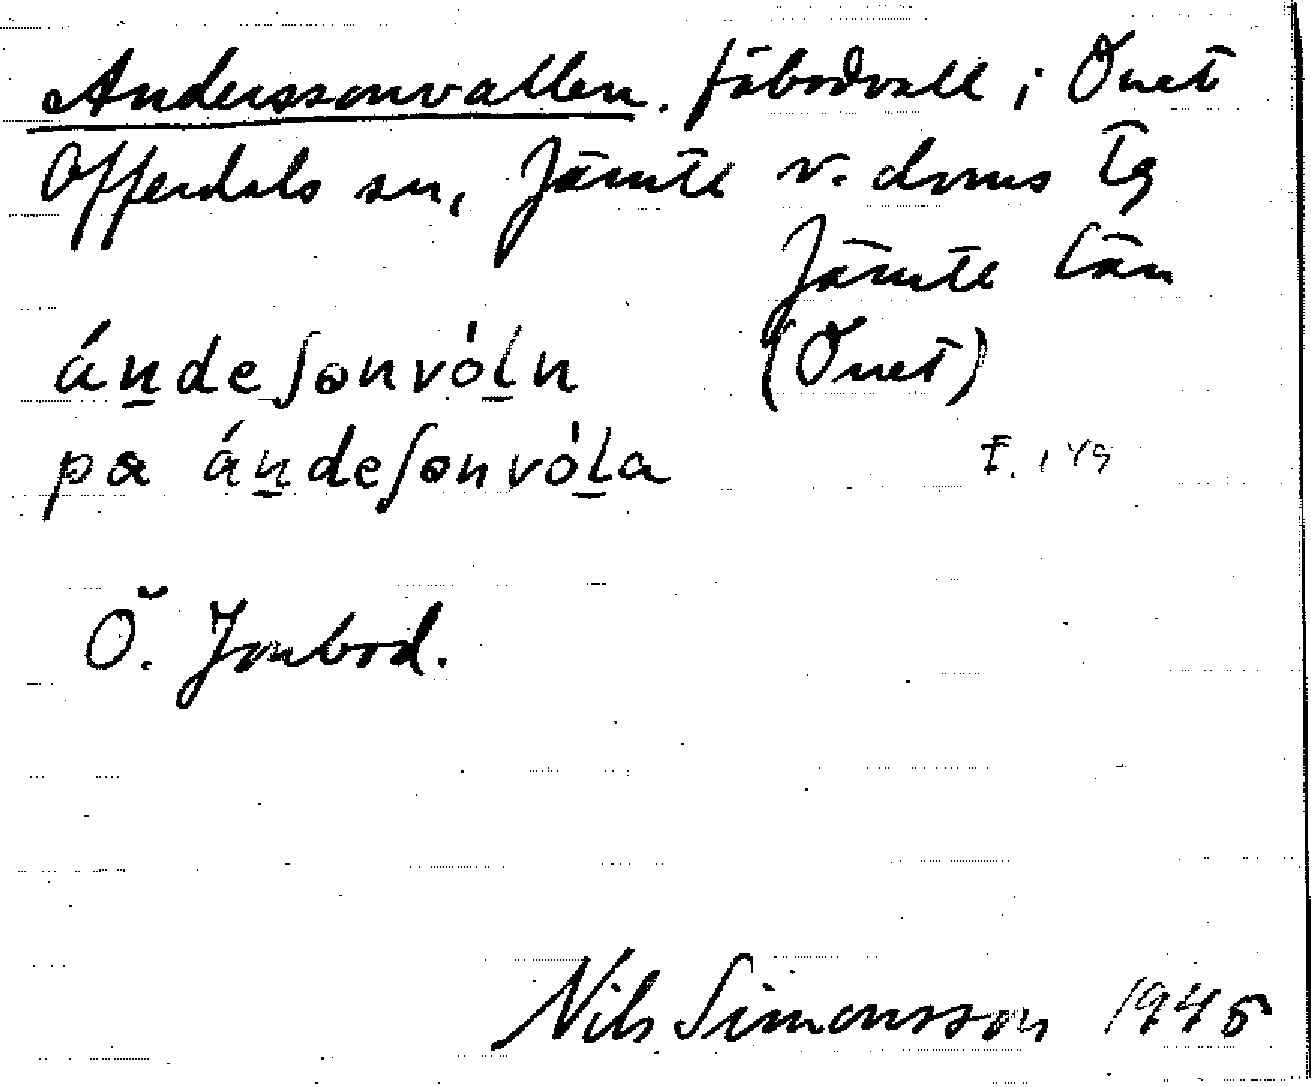 Anderssonvallen. fäbodvall i Önet
Offerdals sn, Jämtl v. doms tg
Jämtl län
ándeʃonvóln (Önet)
pɑ ándeʃonvóla
Ö. Jonbod.
Nils Simonsson 1945